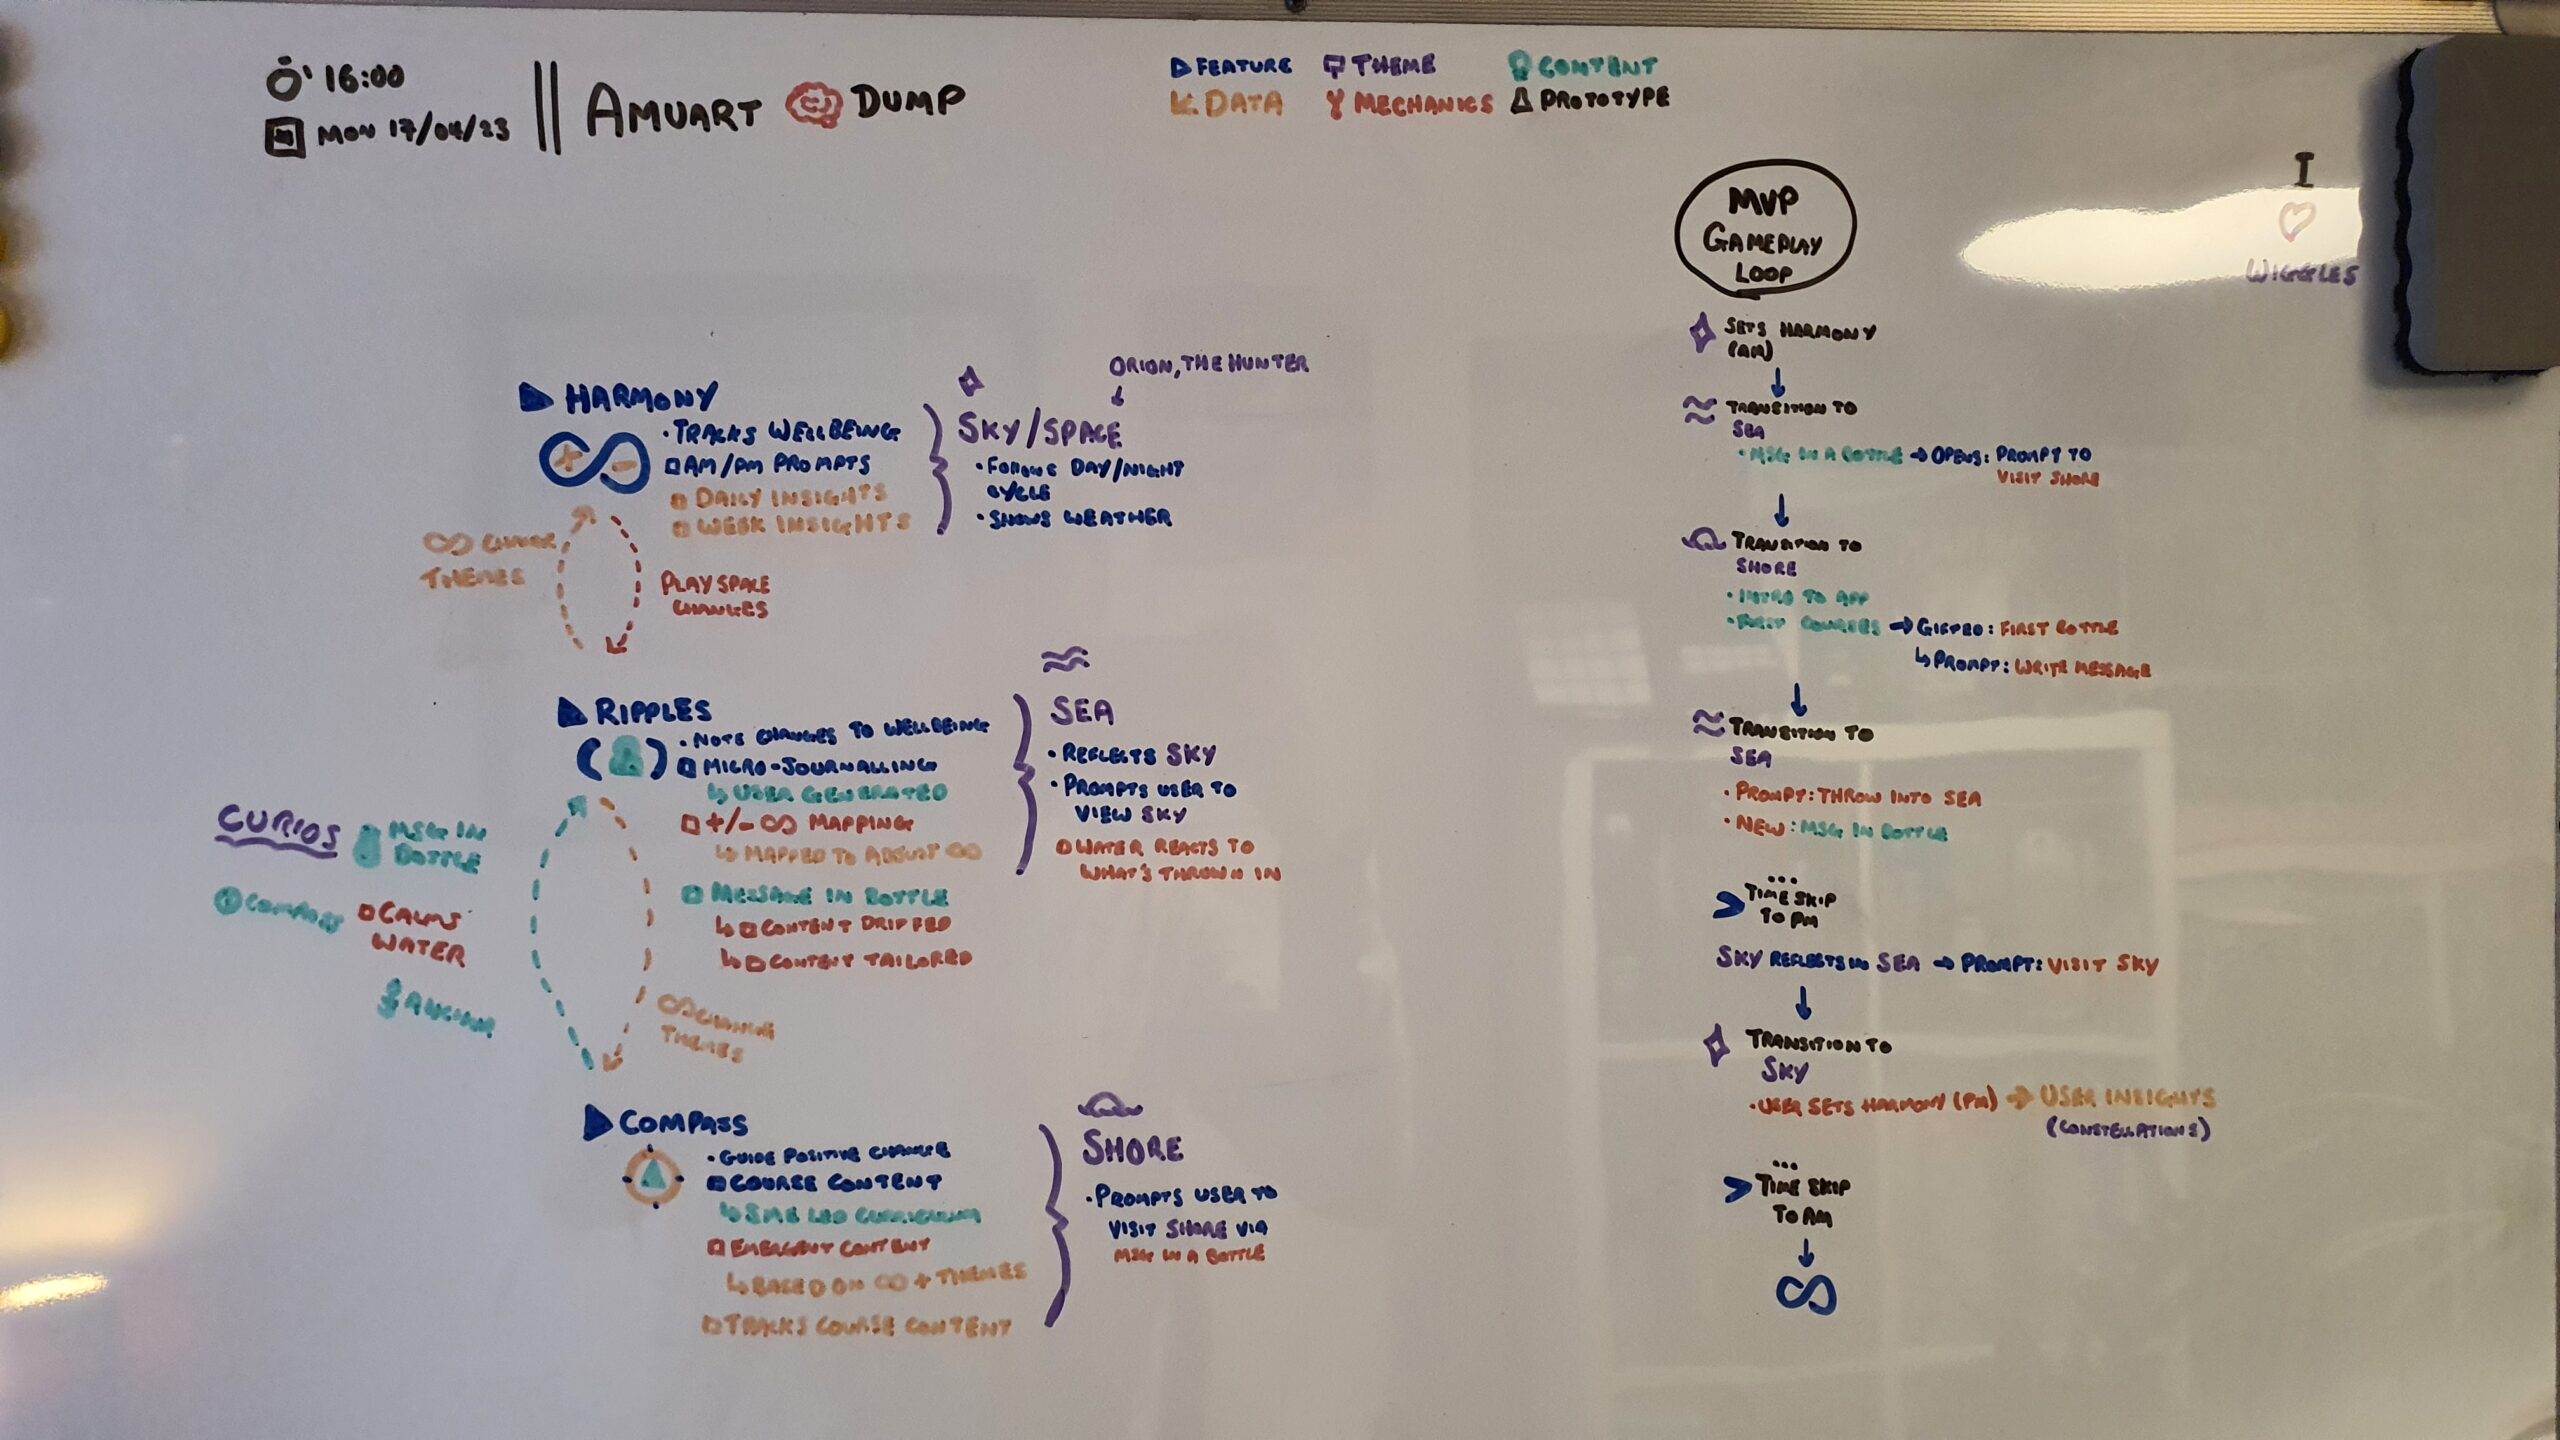 16:00
MON 17/04/23
AMUART DUMP
FEATURE THEME CONTENT
DATA MECHANICS PROTOTYPE
I
WIGGLES
HARMONY
• TRACKS WELLBEING
AM/PM PROMPTS
DAILY INSIGHTS
WEEK INSIGHTS
ORION, THE HUNTER
SKY/SPACE
• FOLLOWS DAY/NIGHT
CYCLE
• SHOWS WEATHER
∞ CHANGE
THEMES
PLAYSPACE
CHANGES
RIPPLES
• NOTE CHANGES TO WELLBEING
MICRO-JOURNALLING
↳ USER GENERATED
+/- ∞ MAPPING
↳ MAPPED TO ADJUST ∞
MESSAGE IN BOTTLE
↳ CONTENT DRIPFED
↳ CONTENT TAILORED
SEA
• REFLECTS SKY
• PROMPTS USER TO
VIEW SKY
WATER REACTS TO
WHAT'S THROWN IN
CURIOS
MSG IN
BOTTLE
COMPASS
CALMS
WATER
∞ CHANGE
THEMES
COMPASS
• GUIDE POSITIVE CHANGE
COURSE CONTENT
↳ SME LED CURRICULUM
EMERGENT CONTENT
↳ BASED ON ∞ + THEMES
TRACKS COURSE CONTENT
SHORE
• PROMPTS USER TO
VISIT SHORE VIA
MSG IN A BOTTLE
MVP
GAMEPLAY
LOOP
SETS HARMONY
(AM)
TRANSITION TO
SEA
• MSG IN A BOTTLE → OPENS: PROMPT TO
VISIT SHORE
TRANSITION TO
SHORE
• INTRO TO APP
• FIRST COURSES → GIFTED: FIRST BOTTLE
↳ PROMPT: WRITE MESSAGE
TRANSITION TO
SEA
• PROMPT: THROW INTO SEA
• NEW: MSG IN BOTTLE
...
TIME SKIP
TO PM
SKY REFLECTS IN SEA → PROMPT: VISIT SKY
TRANSITION TO
SKY
• USER SETS HARMONY (PM) → USER INSIGHTS
(CONSTELLATIONS)
...
TIME SKIP
TO AM